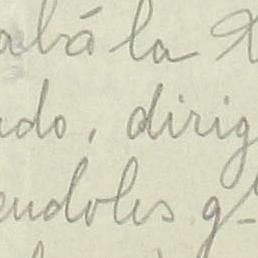 abá la
ado, dirig
endoles g-